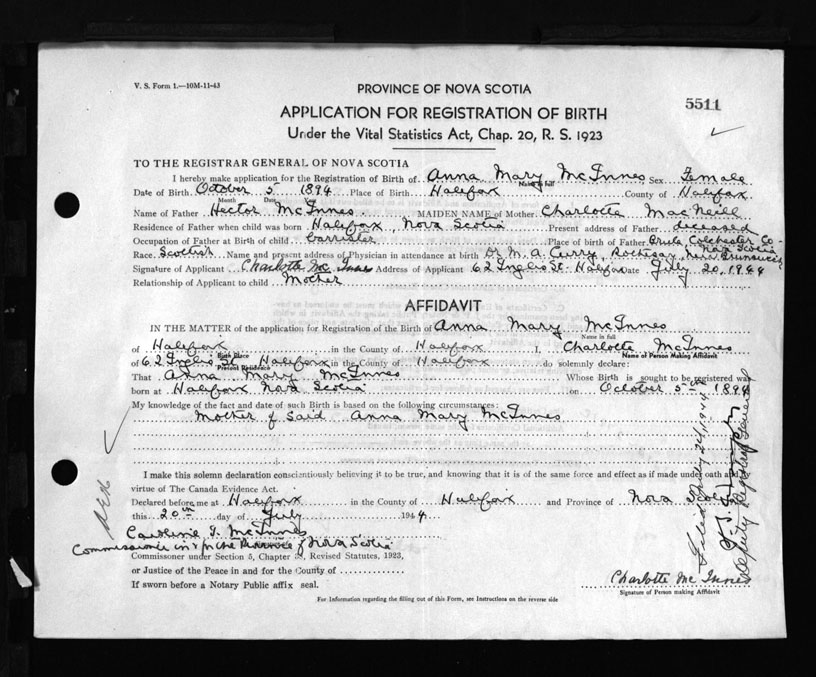 V. S. Form 1.—10M-11-43
PROVINCE OF NOVA SCOTIA
5511
APPLICATION FOR REGISTRATION OF BIRTH
Under the Vital Statistics Act, Chap. 20, R. S. 1923
TO THE REGISTRAR GENERAL OF NOVA SCOTIA
I hereby make application for the Registration of Birth of Anna Mary McInnes Sex Female
Name in full
Date of Birth October 5 1894 Place of Birth Halifax County of Halifax
Month Date Year
Name of Father Hector McInnes MAIDEN NAME of Mother Charlotte MacNeill
Residence of Father when child was born Halifax, Nova Scotia Present address of Father deceased
Occupation of Father at Birth of child barrister Place of birth of Father Colchester Co. Nova Scotia
Race Scottish Name and present address of Physician in attendance at birth Dr. M. A. Curry, Rothesay, New Brunswick
Signature of Applicant Charlotte Mc Innes Address of Applicant 62 Inglis St. Halifax Date July 20, 1944
Relationship of Applicant to child Mother
AFFIDAVIT
IN THE MATTER of the application for Registration of the Birth of Anna Mary McInnes
Name in full
of Halifax in the County of Halifax I, Charlotte McInnes
Birth Place Name of Person Making Affidavit
of 62 Inglis St Halifax in the County of Halifax do solemnly declare:
Present Residence
That Anna Mary McInnes Whose Birth is sought to be registered was
born at Halifax Nova Scotia on October 5th 1894
My knowledge of the fact and date of such Birth is based on the following circumstances:
Mother of said Anna Mary McInnes
I make this solemn declaration conscientiously believing it to be true, and knowing that it is of the same force and effect as if made under oath and
virtue of The Canada Evidence Act.
Declared before me at Halifax in the County of Halifax and Province of Nova Scotia
this 20th day of July 1944
McInnes
Commissioner in & for the Province of Nova Scotia
Commissioner under Section 5, Chapter Revised Statutes, 1923,
or Justice of the Peace in and for the County of
If sworn before a Notary Public affix seal.
Filed July 24, 1944
Deputy Registrar General
Charlotte Mc Innes
Signature of Person making Affidavit
For Information regarding the filling out of this Form, see Instructions on the reverse side